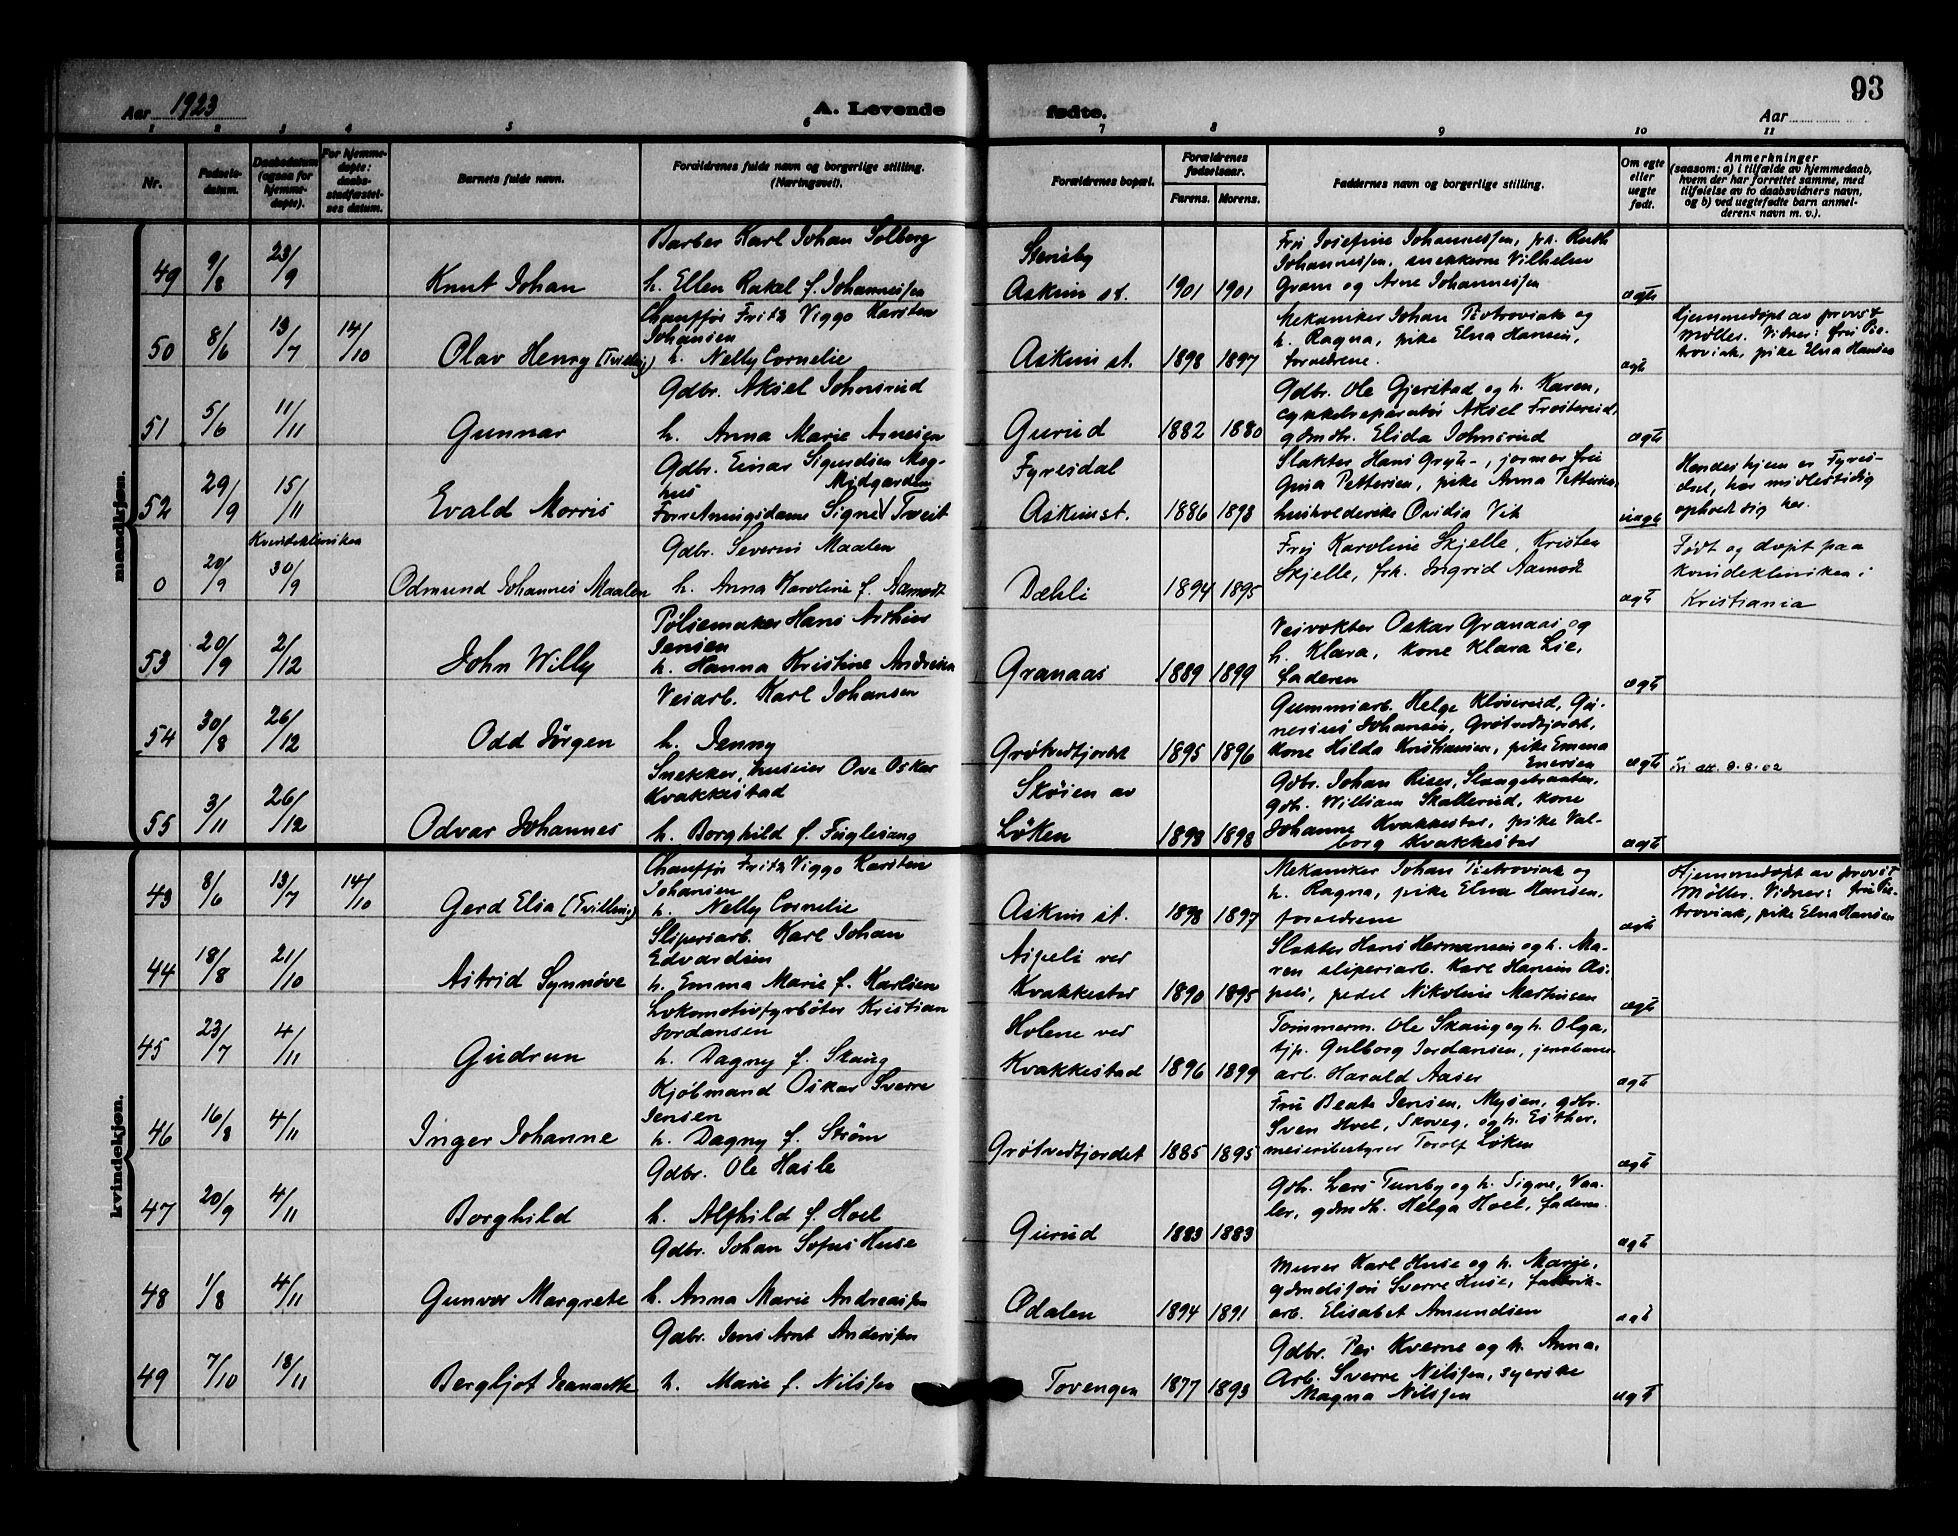 93
Aar 1923
A. Levende fødte.
Aar
1 2 3 4 5 6 7 8 9 10 11
Nr.
Fødsels-
datum.
Daabsdatum
(ogsaa for
hjemme-
døpte).
For hjemme-
døpte:
daabs-
stadfæstel-
ses datum.
Barnets fulde navn.
Forældrenes fulde navn og borgerlige stilling.
(Næringsvei).
Forældrenes bopæl.
Forældrenes
fødselsaar.
Farens. Morens.
Faddernes navn og borgerlige stilling.
Om egte
eller
uegte
født.
Anmerkninger
(saasom: a) i tilfælde av hjemmedaab,
hvem der har forrettet samme, med
tilføielse av to daabsvidners navn,
og b) ved uegtefødte barn anmel-
derens navn m. v.).
mandkjøn.
49 9/8 23/9 Knut Johan
Barber Karl Johan Solberg
h. Ellen Rakel f. Johannessen
Stensby
Askim st. 1901 1901
Fru Josefine Johannessen, frk. Ruth
Johannessen, snekkerne Vilhelm
Gram og Arne Johannessen
egte
50 8/6 13/7 14/10 Olav Henry (Tvilling)
Chauffør Fritz Viggo Karsten
Johansen
h. Nelly Cornelie
Askim st. 1898 1897
Mekaniker Johan Pietroviak og
h. Ragna, pike Elna Hansen,
forældrene.
egte
Hjemmedøpt av provst
Møller. Vidner: fru Pie-
troviak, pike Elna Hansen
51 5/6 11/11 Gunnar
Gdbr. Aksel Johnsrud
h. Anna Marie Arnesen
Gurud 1882 1880
Gdbr. Ole Gjerstad og h. Karen,
cykkelreparatør Aksel
gdmdtr. Elida Johnsrud
egte
52 29/9 15/11 Evald Morris
Gdbr. Einar Sigurdsen Mog-
hus Midgarden
Forretningsdame Signe Tveit
Fyresdal
Askim st. 1886 1893
Slakter Hans Gryt-, jormor fru
Gina Pettersen, pike Anna Pettersen,
husholderske Ovidia Vik
uegte
Hendes hjem er Fyres-
dal, har midlertidig
ophold sig her.
Kvindekliniken
0 20/9 30/9 Odmund Johannes Maalen
Gdbr. Severin Maalen
h. Anna Karoline f. Aamodt
Dæhli 1894 1895
Frøj Karoline Skjelle, Kristen
Skjelle, frk. Ingrid Aamodt
egte
Født og døpt paa
kvindekliniken i
Kristiania
53 20/9 2/12 John Willy
Pølsemaker Hans Arthur
Jensen
h. Hanna Kristine Andresen
Granaas 1889 1899
Veivokter Oskar Granaas og
h. Klara, kone Klara Lie,
faderen
egte
54 30/8 26/12 Odd Jørgen
Veiarb. Karl Johansen
h. Jenny
Grøtvedtjordet 1895 1896
Gummiarb. Helge Kløverud, Gu-
nerius Johansen, Grøtvedtjordet,
kone Hilda Kristiansen, pike Emma
Enersen
egte
55 3/11 26/12 Odvar Johannes
Snekker, huseier Ove Oskar
Kvakkestad
h. Borghild f. Fuglesang
Skøien av
Løken 1898 1898
Gdbr. Johan Riser, Slaagstraaten,
gdbr. William Skallerud, kone
Johanne Kvakkestad, pike Val-
borg Kvakkestad
egte
kvindekjøn.
43 8/6 13/7 14/10 Gerd Elsa (Tvilling)
Chauffør Fritz Viggo Karsten
Johansen
h. Nelly Cornelie
Askim st. 1898 1897
Mekaniker Johan Pietroviak og
h. Ragna, pike Elna Hansen,
forældrene
egte
Hjemmedøpt av provst
Møller. Vidner: fru Pie-
troviak, pike Elna Hansen
44 18/8 21/10 Astrid Synnøve
Sliperiarb. Karl Johan
Edvardsen
h. Emma Marie f. Karlsen
Aspeli ved
Kvakkestad 1890 1895
Slakter Hans Hermansen og h. Ma-
ren sliperiarb. Karl Hansen As-
peli, pedel Nikoline Martinsen
egte
45 23/7 4/11 Gudrun
Lokomotivfyrbøter Kristian
Jordansen
h. Dagny f. Skaug
Holene ved
Kvakkestad 1896 1899
Tømmerm. Ole Skaug og h. Olga,
tjp. Gulborg Jordansen, jernbane-
arb. Harald Aaser
egte
46 16/8 4/11 Inger Johanne
Kjøbmand Oskar Sverre
Jensen
h. Dagny f. Strøm
Grøtvedtjordet 1885 1895
Fru Beate Jensen, Mysen, gdbr.
Sven Hoel, Skoveg, og h. Esther,
meieribestyrer Torolf Løken
egte
47 20/9 4/11 Borghild
Gdbr. Ole Hasle
h. Alfhild f. Hoel
Gurud 1883 1883
Gdbr. Lars Tunby og h. Signe, Vaa-
ler, gdmdtr. Helga Hoel, faderen.
egte
48 1/8 4/11 Gunvor Margrete
Gdbr. Johan Sofus Huse
h. Anna Marie Andreassen
Ødalen 1894 1891
Murer Karl Huse og h. Marie,
gdmdssøn Sverre Huse, fabrik-
arb. Elisabet Amundsen
egte
49 7/10 18/11 Bergljot Jeanette
Gdbr. Jens Arnt Andersen
h. Marie f. Nilssen
Tovengen 1877 1893
Gdbr. Per Kverne og h. Anna,
Arb. Sverre Nilssen, syerske
Magna Nilssen
egte